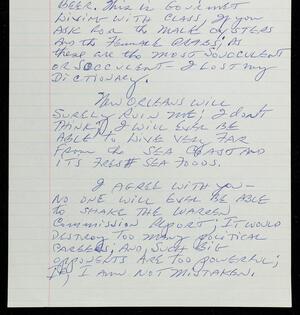 BEER. This is GOURMET
LIVING WITH CLASS, If you
ASK FOR the MALE OYSTERS
AND the FEMALE CRABS; AS
these ARE the MOST SOUCCULENT
OR SOCCULENT - I LOST my
DICTIONARY.
NEW ORLEANS WILL
SURELY RUIN ME; I don't
THINK I WILL EVER BE
ABLE to LIVE VERY FAR
FROM the SEA COAST AND
ITS FRESH SEA FOODS.
I AGREE WITH YOU -
NO ONE WILL EVER BE ABLE
to SHAKE THE WARREN
COMMISSION REPORT; IT WOULD
DESTROY TOO MANY POLITICAL
CAREERS; AND, SUCH BIG
OPPONENTS ARE TOO POWERFUL;
IF, I AM NOT MISTAKEN.